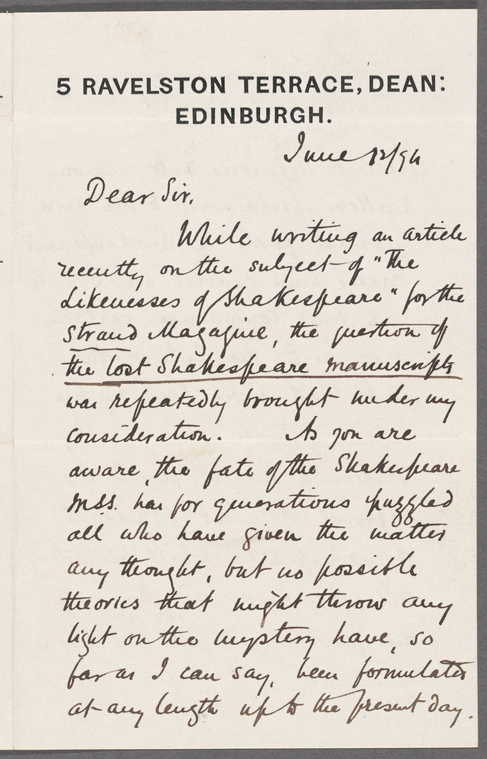 5 RAVELSTON TERRACE, DEAN:
EDINBURGH.
June 12/94
Dear Sir,
While writing an article
recently on the subject of "The
Likenesses of Shakespeare" for the
Strand Magazine, the question of
the lost Shakespeare manuscripts
was repeatedly brought under my
consideration. As you are
aware, the fate of the Shakespeare
M.S.S. has for generations puzzled
all who have given the matter
any thought, but no possible
theories that might throw any
light on the mystery have, so
far as I can say, been formulated
at any length up to the present day.